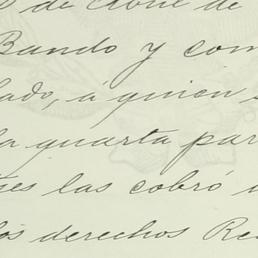 de
Bando y com
lado, á quien
la quarta par
ses las cobró
los derechos Re